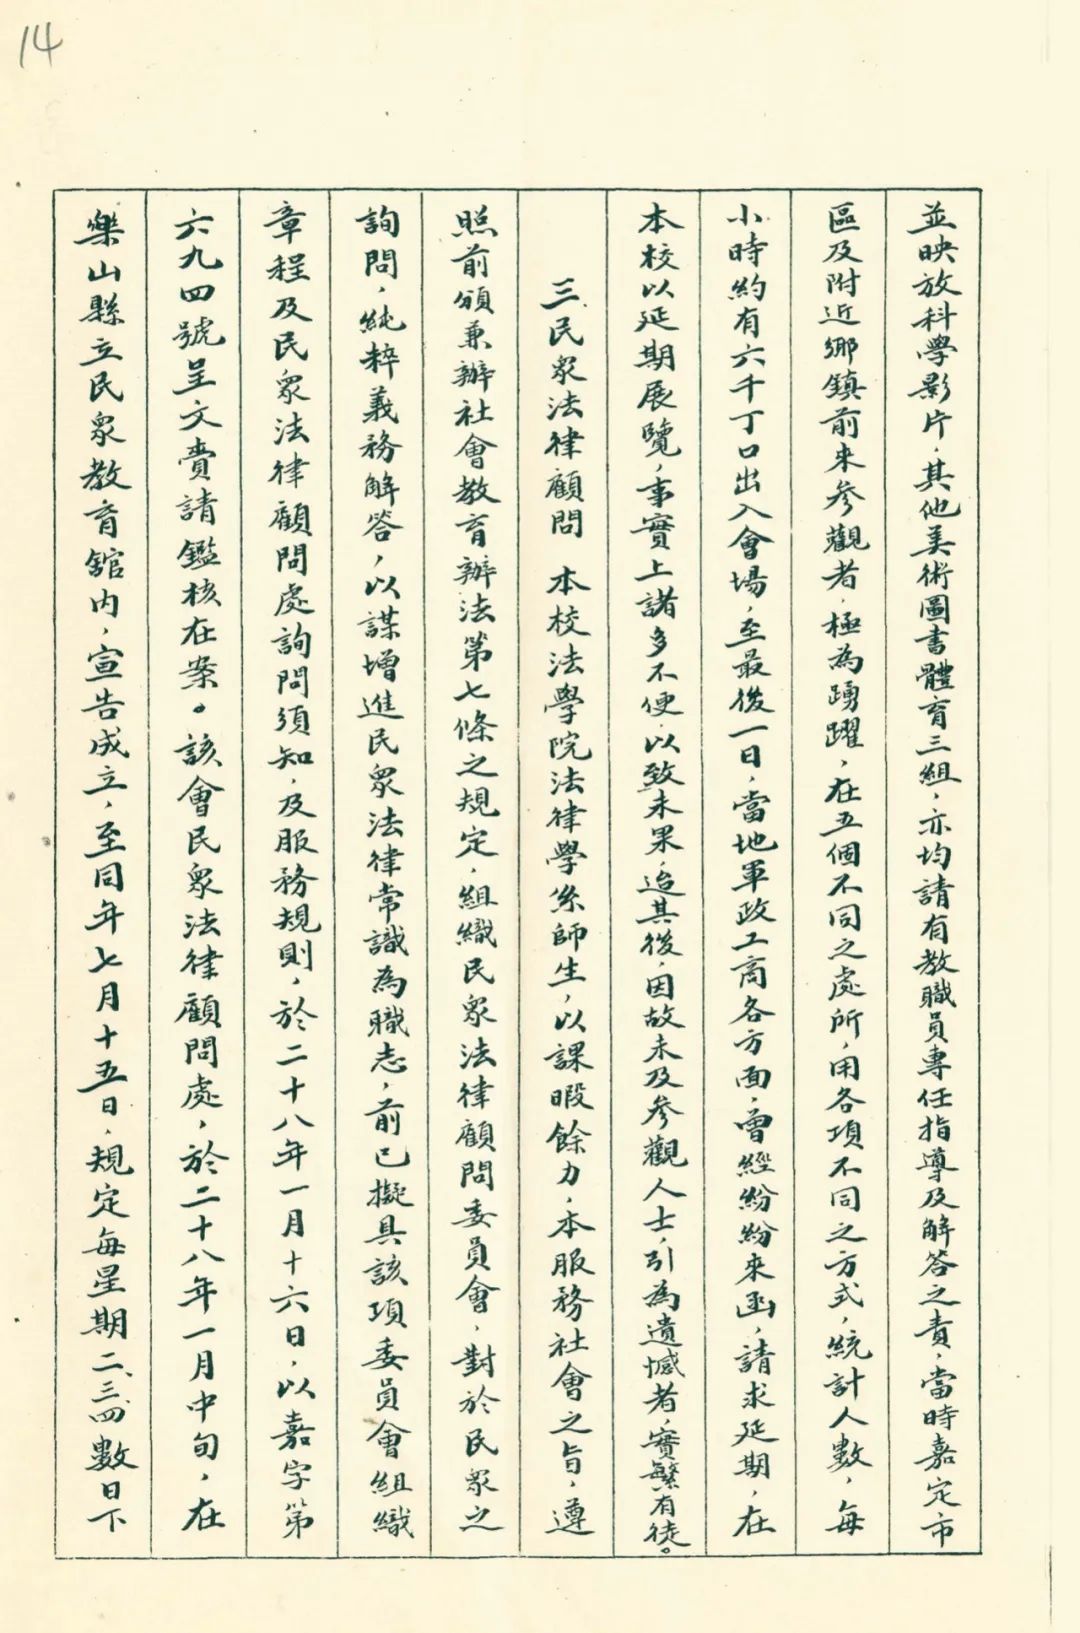 14
並映放科學影片，其他美術圖書體育三組，亦均請有教職員專任指導及解答之責，當時嘉定市
區及附近鄉鎮前來參觀者，極為踴躍，在五個不同之處所，用各項不同之方式，統計人數，每
小時約有六千丁口出入會場，至最後一日，當地軍政工商各方面，曾經紛紛來函，請求延期，在
本校以延期展覽，事實上諸多不便，以致未果，迨其後，因故未及參觀人士，引為遺憾者，實繁有徒。
三、民眾法律顧問　本校法學院法律學系師生，以課暇餘力，本服務社會之旨，遵
照前頒兼辦社會教育辦法第七條之規定，組織民眾法律顧問委員會，對於民眾之
詢問，純粹義務解答，以謀增進民眾法律常識為職志，前已擬具該項委員會組織
章程及民眾法律顧問處詢問須知，及服務規則，於二十八年一月十六日，以嘉字第
六九四號呈文賫請鑑核在案。該會民眾法律顧問處，於二十八年一月中旬，在
樂山縣立民眾教育館內，宣告成立，至同年七月十五日，規定每星期二、三、四數日下